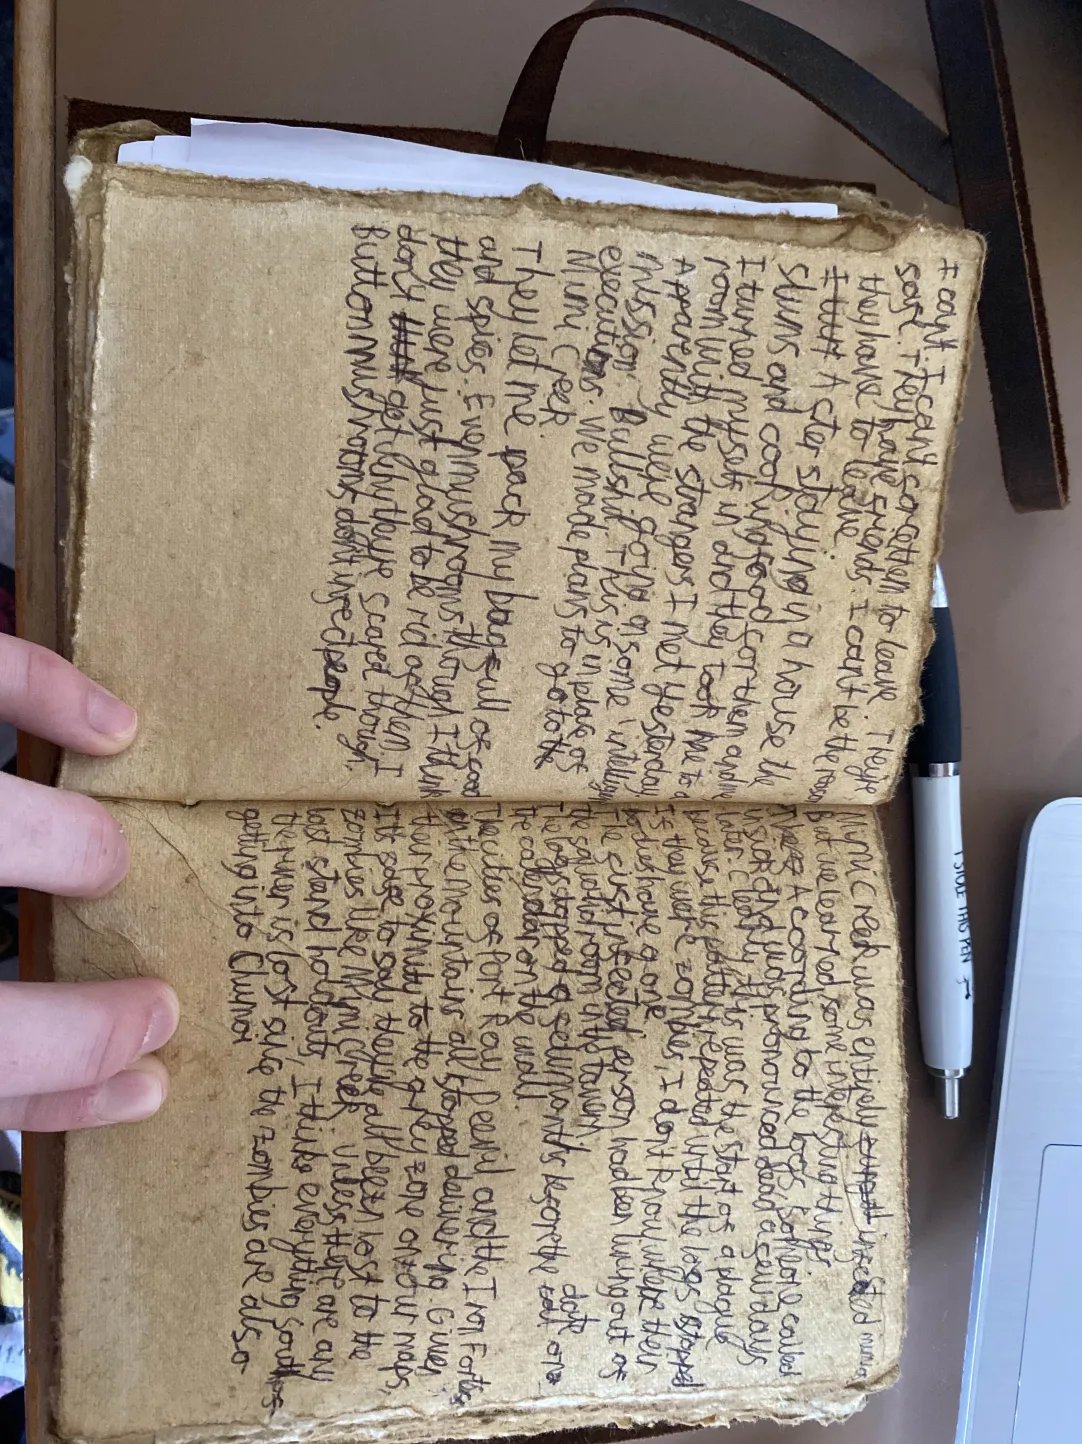 I can't. I can't go ration to leave. They're
safe. They have friends. I can't be the reason
they have to leave.
After staying in a house the
Skuns and cooking food for them and
I turned myself in and they took me to a
room with the strangers I met yesterday
Apparently we're going on some intelligence
mission. Bullshit. This is in place of
executions. We made plans to go to the
Mimi Creek.
They let me pack my bag full of food
and spies. Even mushrooms though I think
they were just glad to be rid of them. I
don't get why they're scared though.
Button mushrooms don't infect people.
Nym Creek was entirely infected
But we learned some interesting things
According to the logs, someone called
in sick and was pronounced dead a few days
later. Clearly this was the start of a plague
because this pattern repeated until the logs stopped
If they were zombies, I don't know where their
bodies have gone
The first infected person had been living out of
the spindle room in the tavern.
The logs stopped
the calendar on the wall.
The cities of Port Ray, Devil and the Iron Fortress
on the mountain all stopped delivering. Given
their proximity to the grey zone on our maps,
It's safe to say they've all been lost to the
zombies like Nym Creek. Unless there are any
last stand holdouts, I think everything south of
the river is lost. Sure the zombies are also
getting into Clumox
I STOLE THIS PEN